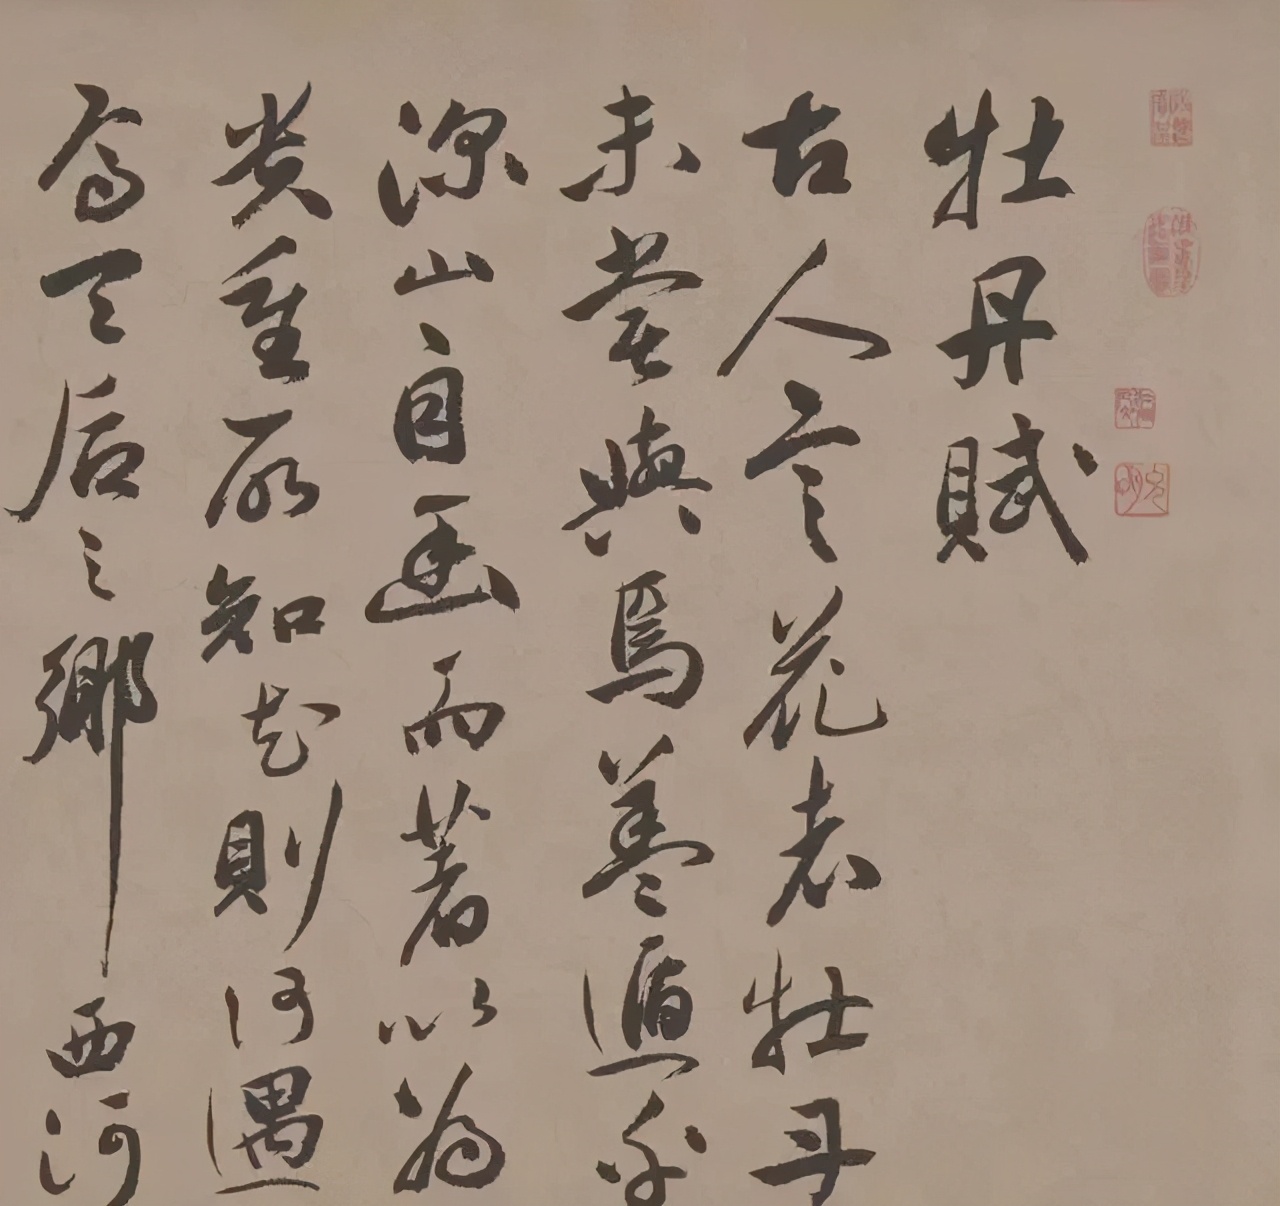 牡丹賦
古人言花者牡丹
未嘗與焉蓋遁乎
深山自幽而著以為
貴重所知花則何遇
焉天后之鄉西河
允明